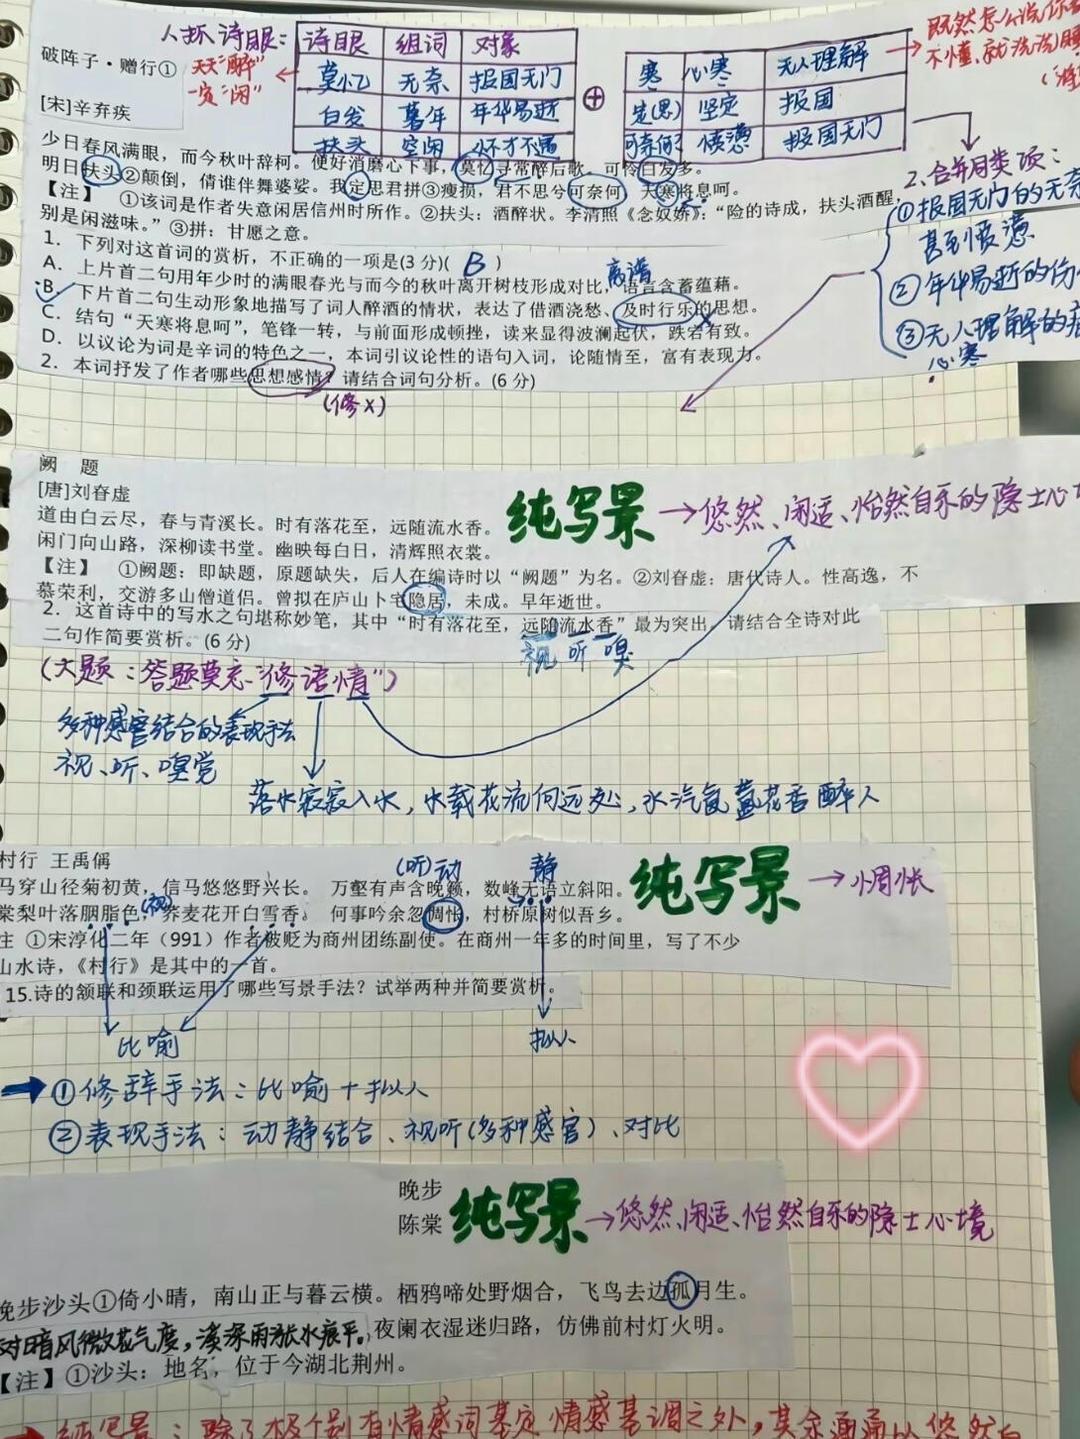 人抓诗眼：
诗眼 组词 对象
莫忆 无奈 报国无门
白发 暮年 年华易逝
扶头 空闲 怀才不遇
⊕
寒 心寒 无人理解
定(思) 坚定 报国
可奈何 愤懑 报国无门
天天“醉”
一定“闲”
既然怎么说你
不懂，就说说
破阵子·赠行①
[宋]辛弃疾
少日春风满眼，而今秋叶辞柯。便好消磨心下事，莫忆寻常醉后歌。可怜白发多。
明日扶头②颠倒，倩谁伴舞婆娑。我定思君拼③瘦损，君不思兮可奈何，天寒将息呵。
【注】 ①该词是作者失意闲居信州时所作。②扶头：酒醉状。李清照《念奴娇》：“险的诗成，扶头酒醒，
别是闲滋味。”③拼：甘愿之意。
1. 下列对这首词的赏析，不正确的一项是(3分)( B )
离谱
A. 上片首二句用年少时的满眼春光与而今的秋叶离开树枝形成对比，语言含蓄蕴藉。
B. 下片首二句生动形象地描写了词人醉酒的情状，表达了借酒浇愁、及时行乐的思想。
C. 结句“天寒将息呵”，笔锋一转，与前面形成顿挫，读来显得波澜起伏，跌宕有致。
D. 以议论为词是辛词的特色之一，本词引议论性的语句入词，论随情至，富有表现力。
2. 本词抒发了作者哪些思想感情？请结合词句分析。(6分)
(修X)
2、合并同类项：
①报国无门的无奈
甚至愤懑
②年华易逝的伤
③无人理解的
心寒
阙 题
[唐]刘眘虚
道由白云尽，春与青溪长。时有落花至，远随流水香。
闲门向山路，深柳读书堂。幽映每白日，清辉照衣裳。
纯写景→悠然、闲适、怡然自乐的隐士心
【注】 ①阙题：即缺题，原题缺失，后人在编诗时以“阙题”为名。②刘眘虚：唐代诗人。性高逸，不
慕荣利，交游多山僧道侣。曾拟在庐山卜宅隐居，未成。早年逝世。
2. 这首诗中的写水之句堪称妙笔，其中“时有落花至，远随流水香”最为突出，请结合全诗对此
二句作简要赏析。(6分)
视 听 嗅
(大题：答题莫忘“修语情”)
多种感官结合的表现手法
视、听、嗅觉
落水寂寂入水，水载花流向远处，水汽氤氲花香醉人
村行 王禹偁
(听)动 静
马穿山径菊初黄，信马悠悠野兴长。 万壑有声含晚籁，数峰无语立斜阳。
(视)
棠梨叶落胭脂色，荞麦花开白雪香。 何事吟余忽惆怅，村桥原树似吾乡。
纯写景→惆怅
注 ①宋淳化二年（991）作者被贬为商州团练副使。在商州一年多的时间里，写了不少
山水诗，《村行》是其中的一首。
15.诗的颔联和颈联运用了哪些写景手法？试举两种并简要赏析。
比喻 拟人
→①修辞手法：比喻+拟人
②表现手法：动静结合、视听(多种感官)、对比
晚步
陈棠
纯写景→悠然、闲适、怡然自乐的隐士心境
晚步沙头①倚小晴，南山正与暮云横。栖鸦啼处野烟合，飞鸟去边孤月生。
对暗风微花气度，溪深雨涨水痕平。夜阑衣湿迷归路，仿佛前村灯火明。
【注】①沙头：地名，位于今湖北荆州。
→纯写景：除了极个别有情感词基定情感基调之外，其余通通以悠然自